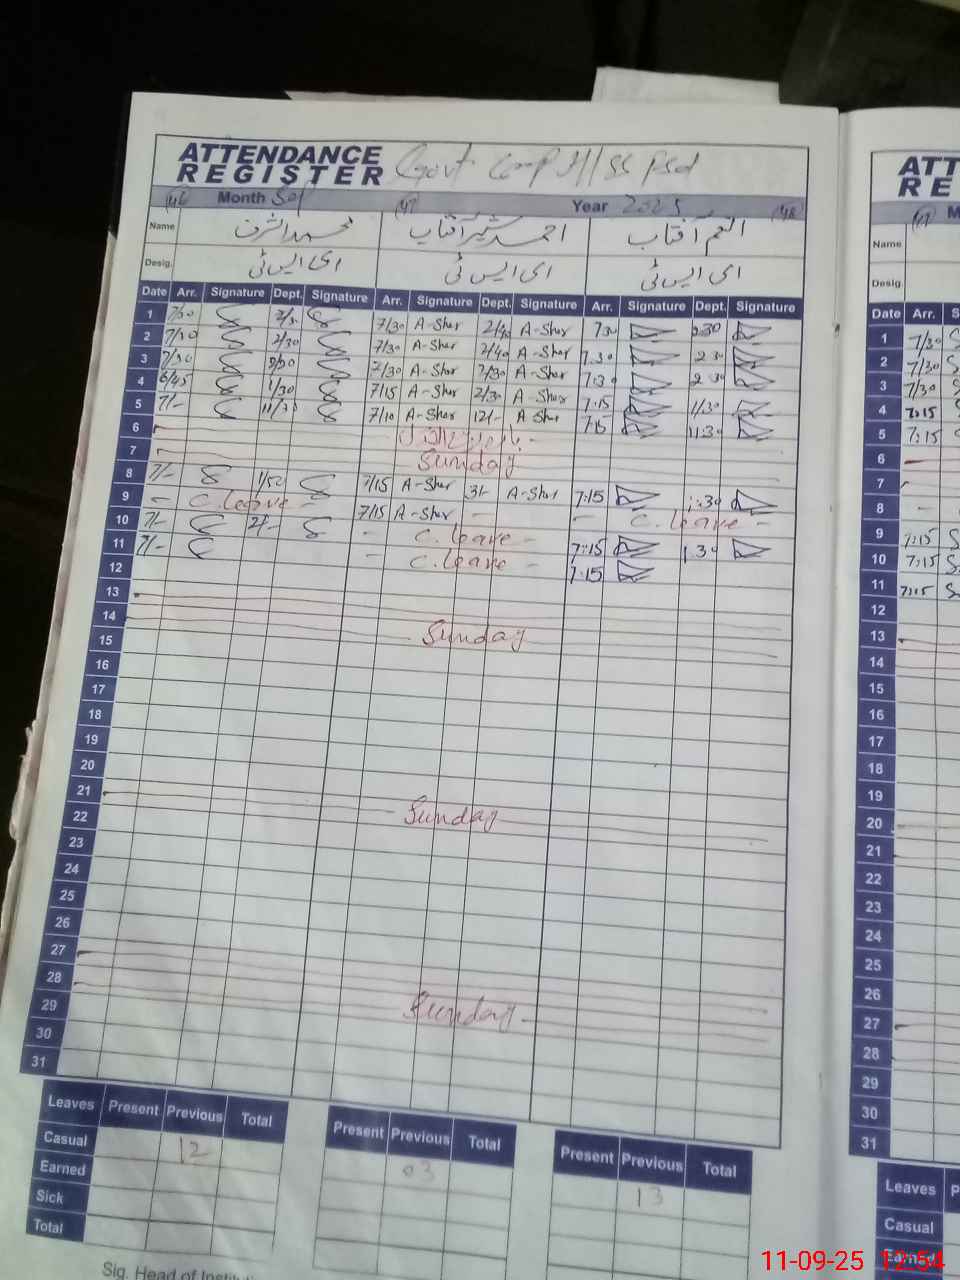 ATTENDANCE REGISTER Govt. Comp H/SS
46 Month Sep 47 Year 2025 48
Name محمد اشرف احمد شیر آفتاب انعم آفتاب
Desig. ای ایس ٹی ای ایس ٹی ای ایس ٹی
Date Arr. Signature Dept. Signature Arr. Signature Dept. Signature Arr. Signature Dept. Signature
1 7/30 7/30 A-Sher 2/40 A-Sher 7:30 2:30
2 7/30 2/30 7/30 A-Sher 2/40 A-Sher 7:30 2:30
3 7/30 7/30 A-Sher 2/30 A-Sher 7:30 2:30
4 6/45 1/30 7/15 A-Sher 2/30 A-Sher 7:15 1/30
5 7/- 11/30 7/10 A-Sher 12/- A-Sher 7:15 11:30
6
7 Sunday
8 7/- 1/50 7/15 A-Sher 3/- A-Sher 7:15 1:30
9 - C. leave - 7/15 A-Sher - - C. leave -
10 7/- 2/- - C. leave - 7:15 1:30
11 7/- - C. leave - 7:15
12
13
14 Sunday
15
16
17
18
19
20
21 Sunday
22
23
24
25
26
27
28 Sunday
29
30
31
Leaves Present Previous Total Present Previous Total Present Previous Total
Casual 12 03 13
Earned
Sick
Total
Sig. Head of
ATT
RE
47 M
Name
Desig.
Date Arr. S
1 7/30
2 7/30
3 7/30
4 7:15
5 7:15
6
7
8 -
9 7:15
10 7:15
11 7:15
12
13
14
15
16
17
18
19
20
21
22
23
24
25
26
27
28
29
30
31
Leaves P
Casual
Earned
11-09-25 12:54